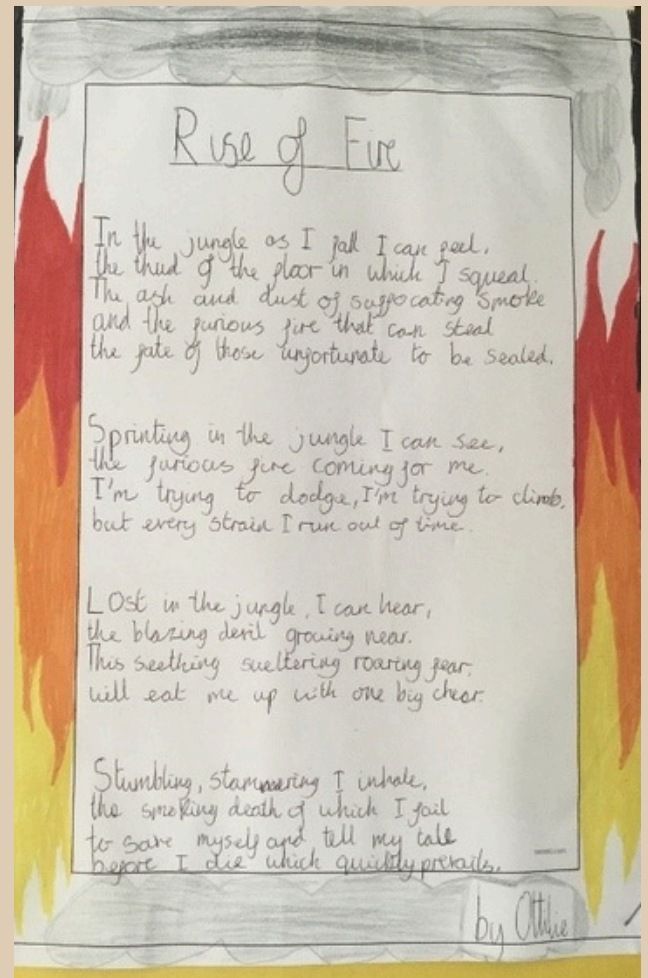 Rise of Fire
In the jungle as I fall I can feel,
the thud of the floor in which I squeal.
The ash and dust of suffocating smoke
and the furious fire that can steal
the fate of those unfortunate to be sealed.
Sprinting in the jungle I can see,
the furious fire coming for me.
I'm trying to dodge, I'm trying to climb,
but every strain I run out of time.
Lost in the jungle, I can hear,
the blazing devil growing near.
This seething sweltering roaring fear,
will eat me up with one big cheer.
Stumbling, stammering I inhale,
the smoking death of which I fail
to save myself and tell my tale
before I die which quickly prevails.
by Ottilie